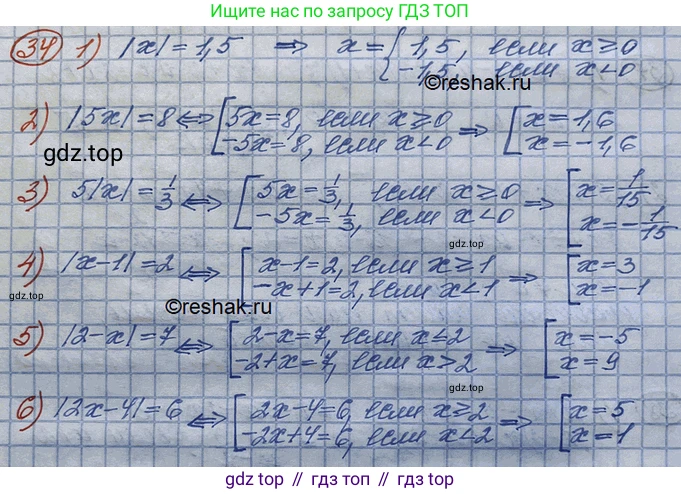 Ищите по запросу ГДЗ ТОП
34 1) |x| = 1,5 ⇒ x = { 1,5, если x ≥ 0
-1,5, если x < 0
©reshak.ru
2) |5x| = 8 ⇔ [ 5x = 8, если x ≥ 0
-5x = 8, если x < 0 ⇒ [ x = 1,6
x = -1,6
gdz.top
3) 5|x| = 1/3 ⇔ [ 5x = 1/3, если x ≥ 0
-5x = 1/3, если x < 0 ⇒ [ x = 1/15
x = -1/15
gdz.top
4) |x-1| = 2 ⇔ [ x-1 = 2, если x ≥ 1
-x+1 = 2, если x < 1 ⇒ [ x = 3
x = -1
gdz.top
©reshak.ru
5) |2-x| = 7 ⇔ [ 2-x = 7, если x ≤ 2
-2+x = 7, если x > 2 ⇒ [ x = -5
x = 9
gdz.top
6) |2x-4| = 6 ⇔ [ 2x-4 = 6, если x ≥ 2
-2x+4 = 6, если x < 2 ⇒ [ x = 5
x = 1
©reshak.ru
gdz top / гдз топ / gdz.top